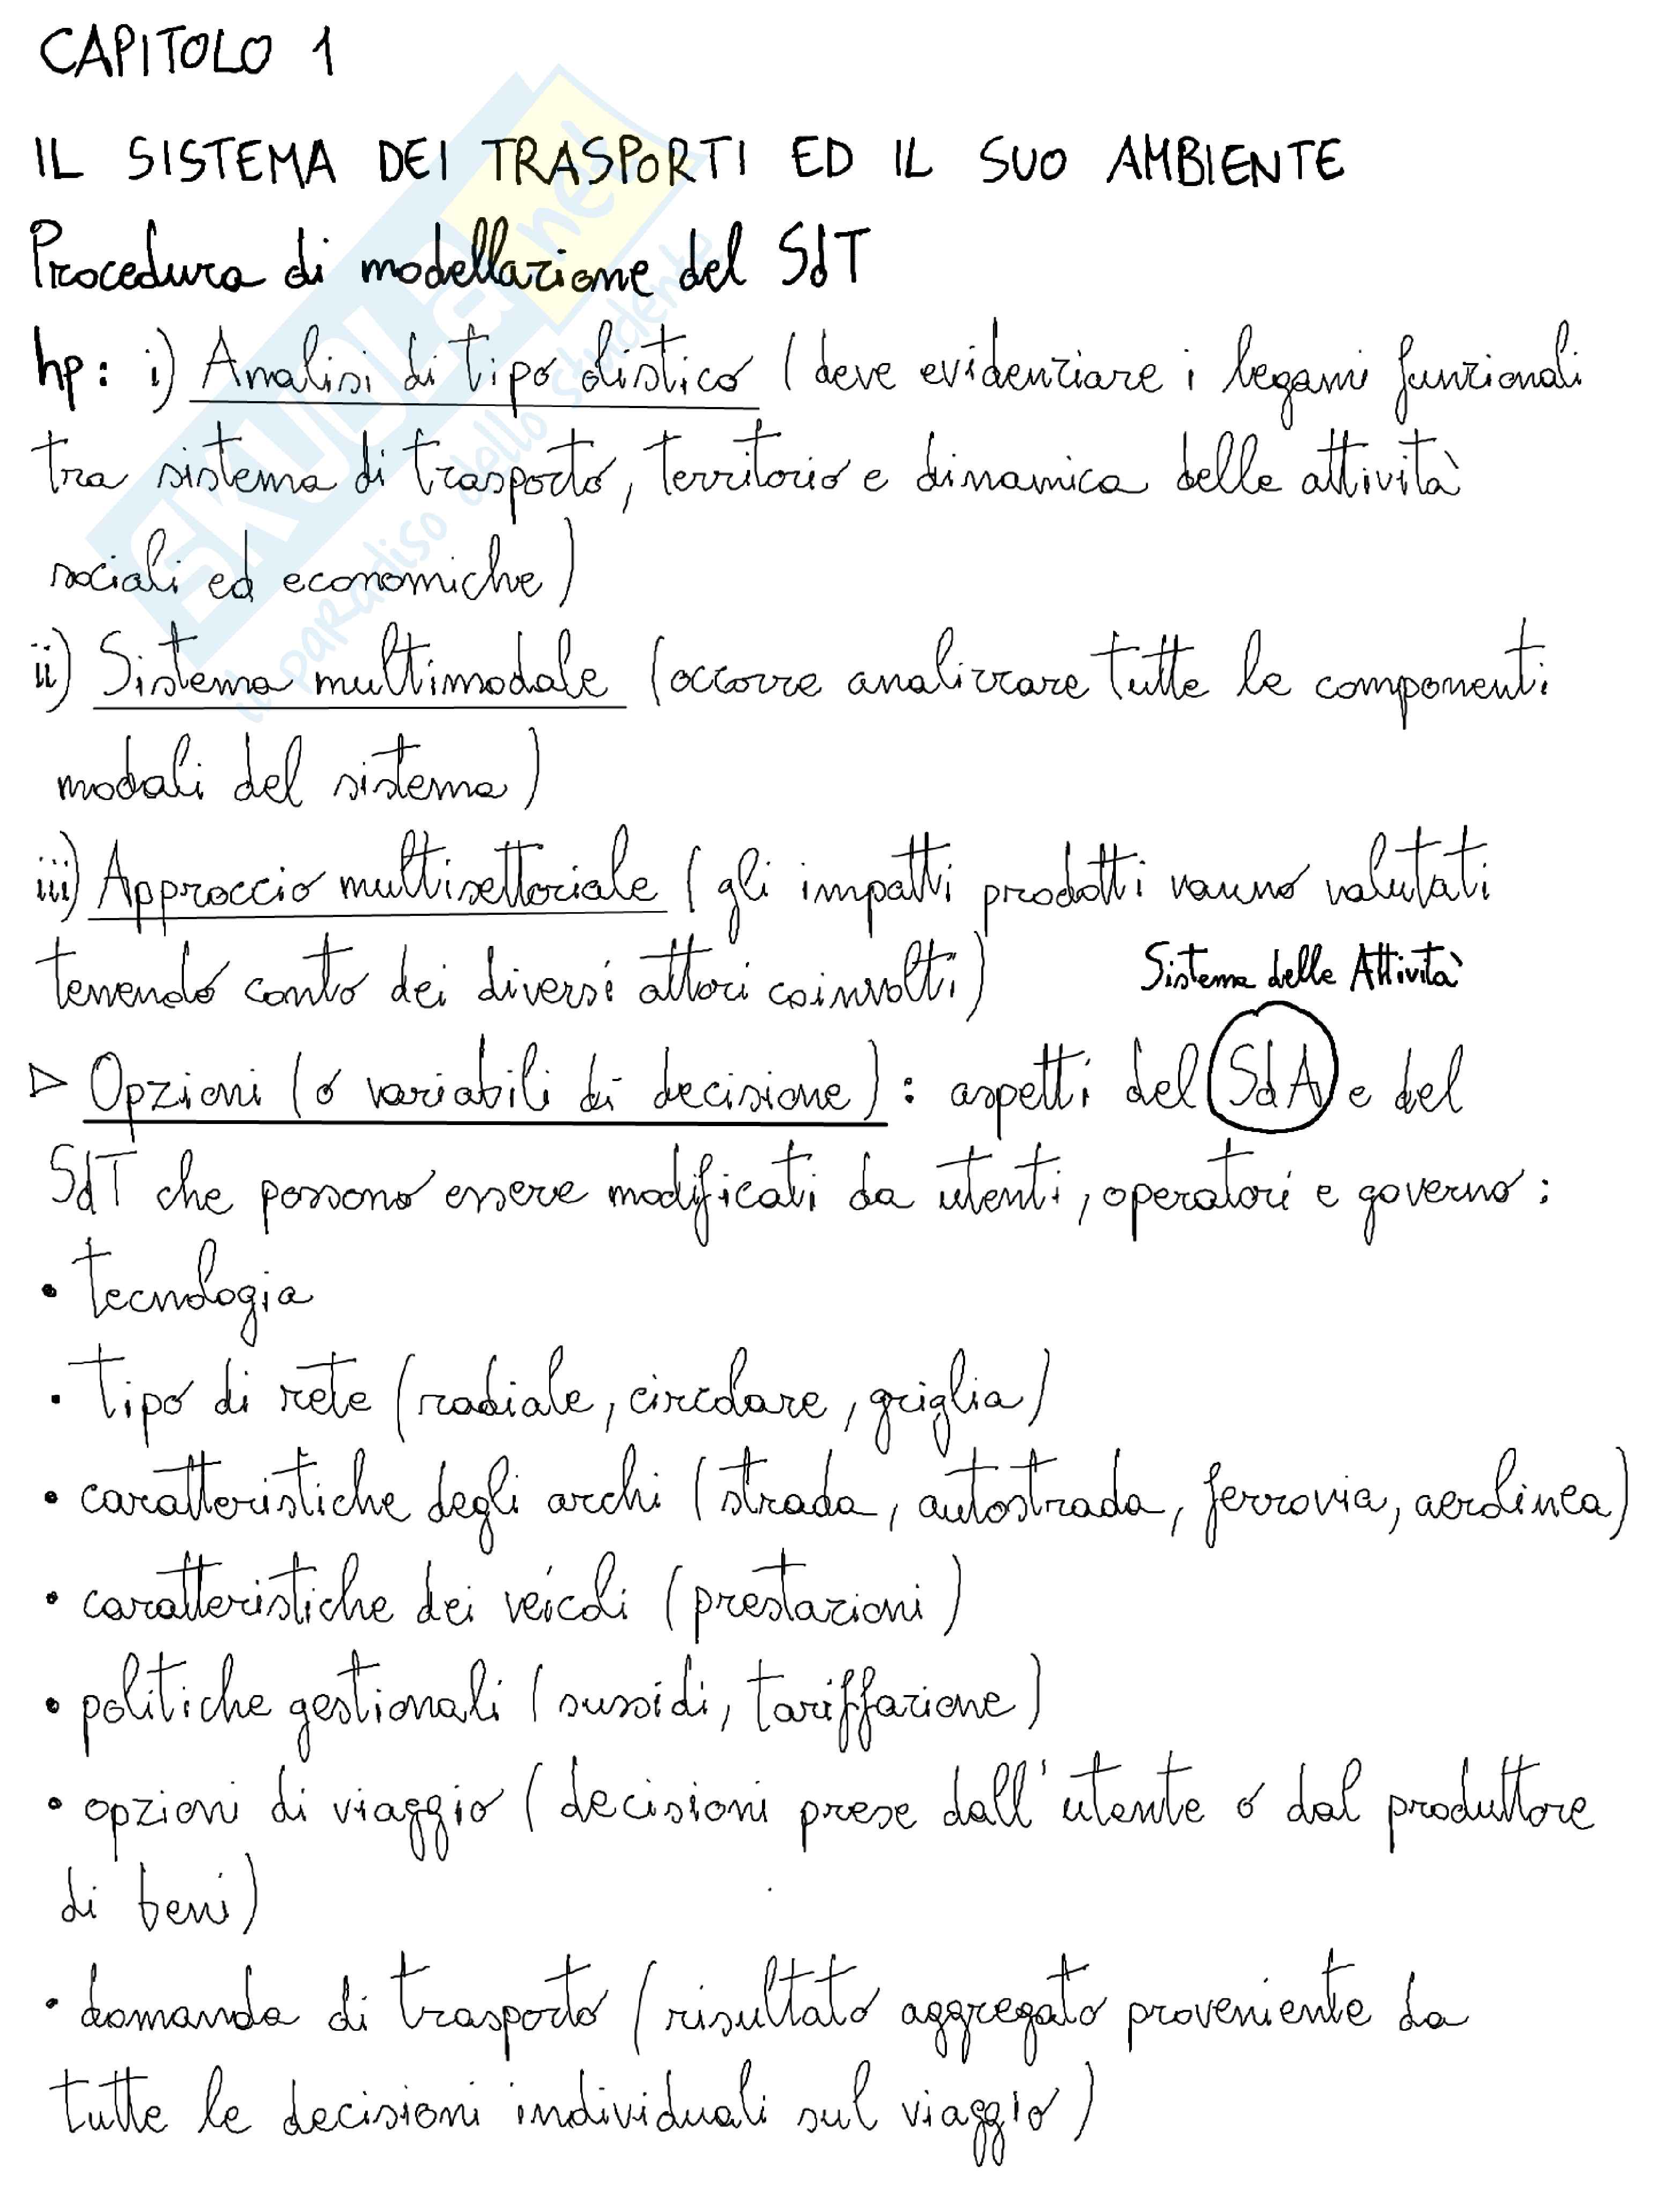 CAPITOLO 1
IL SISTEMA DEI TRASPORTI ED IL SUO AMBIENTE
Procedura di modellazione del SdT
hp: i) Analisi di tipo olistico (deve evidenziare i legami funzionali
tra sistema di trasporto, territorio e dinamica delle attività
sociali ed economiche)
ii) Sistema multimodale (occorre analizzare tutte le componenti
modali del sistema)
iii) Approccio multisettoriale (gli impatti prodotti vanno valutati
tenendo conto dei diversi attori coinvolti)
Sistema delle Attività
▷ Opzioni (o variabili di decisione): aspetti del SdA e del
SdT che possono essere modificati da utenti, operatori e governo:
• tecnologia
• tipo di rete (radiale, circolare, griglia)
• caratteristiche degli archi (strada, autostrada, ferrovia, aerolinea)
• caratteristiche dei veicoli (prestazioni)
• politiche gestionali (sussidi, tariffazione)
• opzioni di viaggio (decisioni prese dall'utente o dal produttore
di beni)
• domanda di trasporto (risultato aggregato proveniente da
tutte le decisioni individuali sul viaggio)
SKUOLA.net
il paradiso dello studente